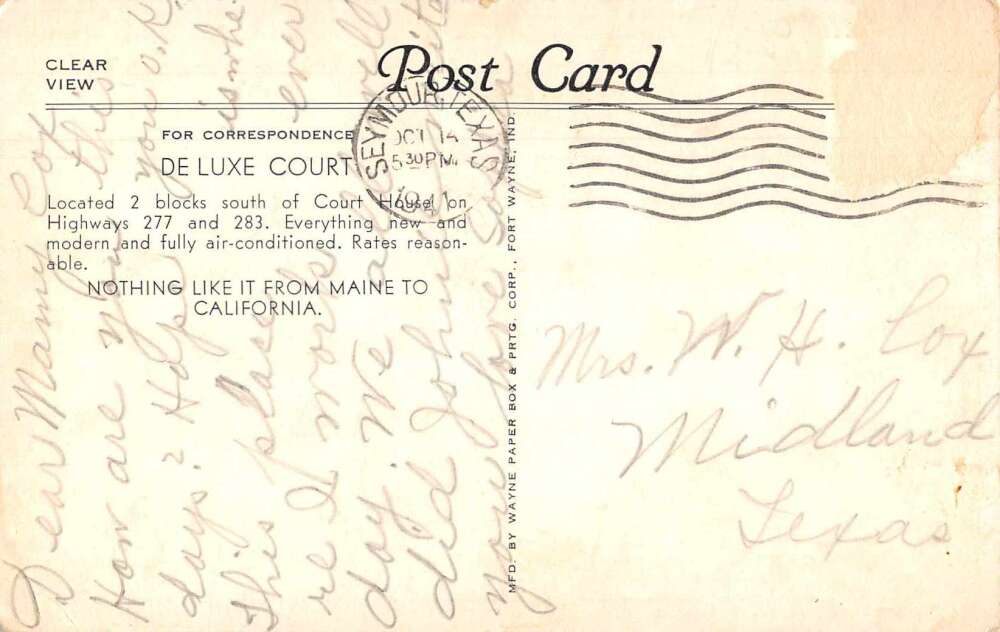 CLEAR
VIEW
Post Card
FOR CORRESPONDENCE
DE LUXE COURT
Located 2 blocks south of Court House on
Highways 277 and 283. Everything new and
modern and fully air-conditioned. Rates reason-
able.
NOTHING LIKE IT FROM MAINE TO
CALIFORNIA.
SEYMOUR, TEXAS
OCT 14
5 30 PM
1941
MFD. BY WAYNE PAPER BOX & PRTG. CORP., FORT WAYNE, IND.
Dear Mamy Cox
How are you this
days? Hope you o.K.
This place is whe
re I work ever
day. We all well
did John
your love
Mrs. W. H. Cox
Midland
Texas